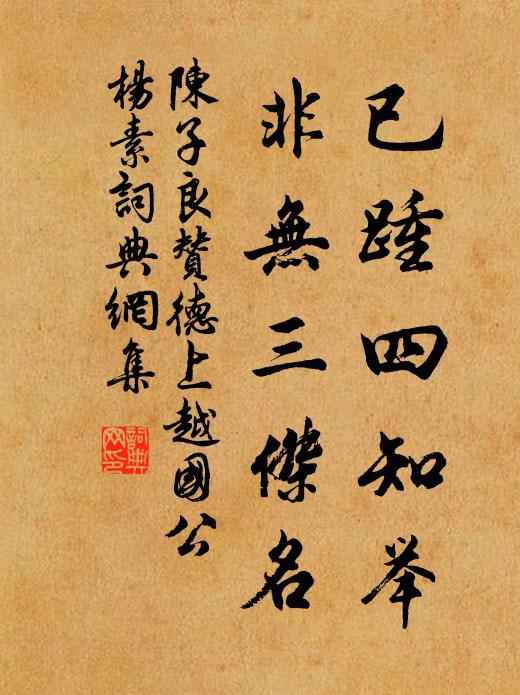 已踵四知举
非無三傑名
陳子良赞德上越國公
楊素詞典網集
詞典网印